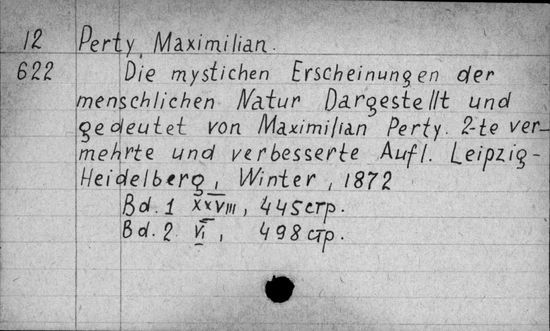 12 Perty, Maximilian.
622 Die mystichen Erscheinungen der
menschlichen Natur Dargestellt und
gedeutet von Maximilian Perty. 2-te ver-
mehrte und verbesserte Aufl. Leipzig-
Heidelberg, Winter, 1872
Bd. 1 XXVIII, 445 стр.
Bd. 2 VI, 498 стр.